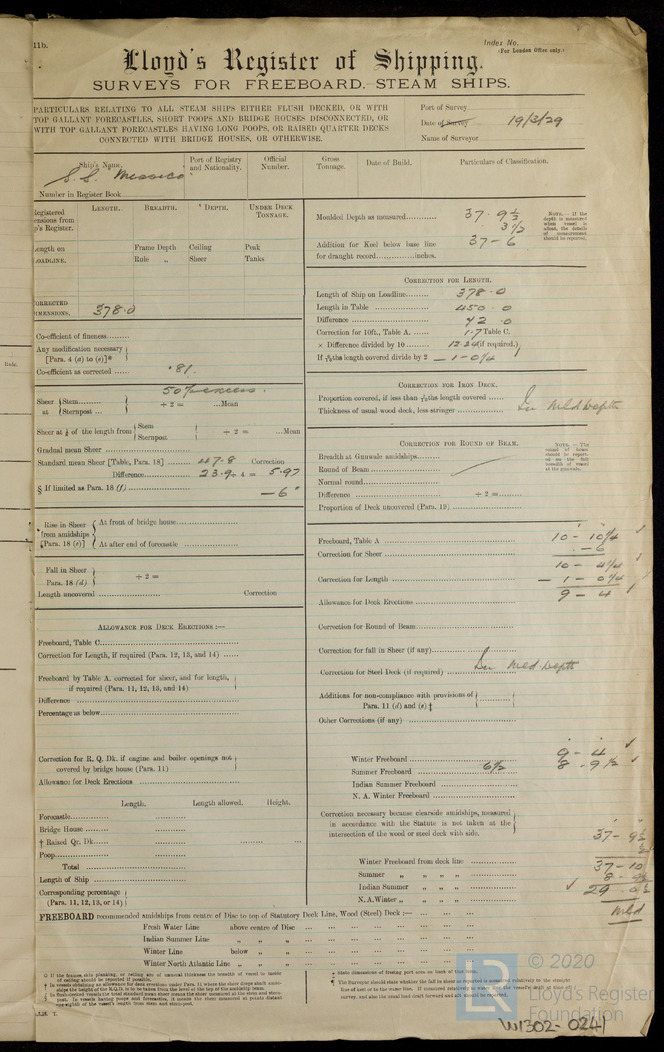 11b.
Index No.
(For London Office only.)
Lloyd's Register of Shipping.
SURVEYS FOR FREEBOARD.—STEAM SHIPS.
PARTICULARS RELATING TO ALL STEAM SHIPS EITHER FLUSH DECKED, OR WITH
TOP GALLANT FORECASTLES, SHORT POOPS AND BRIDGE HOUSES DISCONNECTED, OR
WITH TOP GALLANT FORECASTLES HAVING LONG POOPS, OR RAISED QUARTER DECKS
CONNECTED WITH BRIDGE HOUSES, OR OTHERWISE.
Port of Survey
Date of Survey 19/3/29
Name of Surveyor
Ship's Name.
Port of Registry and Nationality.
Official Number.
Gross Tonnage.
Date of Build.
Particulars of Classification.
S.S.
Number in Register Book
Registered
ensions from
p's Register.
LENGTH. BREADTH. DEPTH. UNDER DECK TONNAGE.
ength on
LOADLINE.
Frame Depth Ceiling Peak
Rule „ Sheer Tanks
CORRECTED
IMENSIONS. 378.0
Co-efficient of fineness
Any modification necessary
[Para. 4 (a) to (e)]*
Co-efficient as corrected .81
50% excess.
Sheer at Stem Sternpost ÷ 2 = Mean
Sheer at ⅛ of the length from Stem Sternpost ÷ 2 = Mean
Gradual mean Sheer
Standard mean Sheer [Table, Para. 18] 47.8 Correction
Difference 23.9 ÷ 4 = 5.97
§ If limited as Para. 18 (f) — 6"
Rise in Sheer from amidships [Para. 18 (e)]
At front of bridge house
At after end of forecastle
Fall in Sheer
Para. 18 (d) ÷ 2 =
Length uncovered Correction
ALLOWANCE FOR DECK ERECTIONS :—
Freeboard, Table C
Correction for Length, if required (Para. 12, 13, and 14)
Freeboard by Table A, corrected for sheer, and for length,
if required (Para. 11, 12, 13, and 14)
Difference
Percentage as below
Correction for R. Q. Dk. if engine and boiler openings not
covered by bridge house (Para. 11)
Allowance for Deck Erections
Length. Length allowed. Height.
Forecastle
Bridge House
† Raised Qr. Dk.
Poop
Total
Length of Ship
Corresponding percentage
(Para. 11, 12, 13, or 14)
Moulded Depth as measured 37 . 9½
3½
37 – 6
Addition for Keel below base line
for draught record inches.
NOTE.—If the depth is measured when vessel is afloat, the details of measurement should be reported.
CORRECTION FOR LENGTH.
Length of Ship on Loadline 378.0
Length in Table 450.0
Difference 72.0
Correction for 10ft., Table A. 1.7 Table C.
× Difference divided by 10 12.24 (if required.)
If 6/10ths length covered divide by 2 — 1 – 0¼
CORRECTION FOR IRON DECK.
Proportion covered, if less than 7/10ths length covered
Thickness of usual wood deck, less stringer
In Mld Depth
CORRECTION FOR ROUND OF BEAM.
Breadth at Gunwale amidships
Round of Beam
Normal round
Difference ÷ 2 =
Proportion of Deck uncovered (Para. 19)
NOTE.—The round of beam should be reported on the full breadth of vessel at the gunwale.
Freeboard, Table A 10 – 10¼
Correction for Sheer – 6
10 – 4¼
Correction for Length – 1 – 0¼
9 – 4
Allowance for Deck Erections
Correction for Round of Beam
Correction for fall in Sheer (if any)
Correction for Steel Deck (if required) In Mld Depth
Additions for non-compliance with provisions of
Para. 11 (d) and (e) ‡
Other Corrections (if any)
Winter Freeboard 9 – 4
Summer Freeboard 6½ 8 . 9½
Indian Summer Freeboard
N. A. Winter Freeboard
Correction necessary because clearside amidships, measured
in accordance with the Statute is not taken at the
intersection of the wood or steel deck with side.
37 – 9½
½
37 – 10
8 – 9½
29 0½
Mld
Winter Freeboard from deck line
Summer „ „ „ „
Indian Summer „ „ „
N.A. Winter „ „ „
FREEBOARD recommended amidships from centre of Disc to top of Statutory Deck Line, Wood (Steel) Deck :—
Fresh Water Line above centre of Disc
Indian Summer Line „ „
Winter Line below „
Winter North Atlantic Line „ „
© 2020
Lloyd's Register
Foundation
W1302-0241